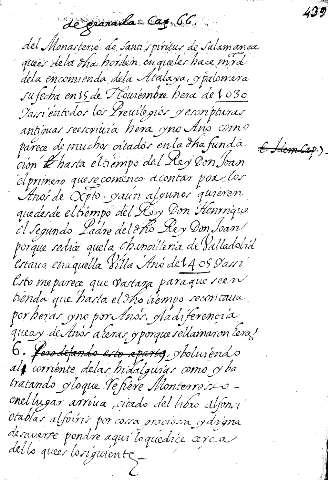 de granada. Cap. 66.
439
del Monasterio de Sancti spiritus de Salamanca
ques de la dha horden, en que les hace mrd
de la encomienda de la Atalaya, y palomara
su fecha en 15 de Noviembre hera de 1030
y assi en todos los Previlegios y escripturas
antiguas se escrivia hera, y no Año como
parece de muchos citados en la dha funda
cion hasta el tiempo del Rey Don Joan
el primero que se començo a contar por los
Años de Xpto. y aun algunos quieren
que desde el tiempo del Rey Don Henrrique
el segundo Padre del dho Rey Don Joan
porque sedice que la Chancilleria de Valladolid
estava en aquella Villa Año de 1405 y assi
esto me parece que vastara para que se en
tienda que hasta el dho tiempo se contava
por heras y no por Años, y la diferencia
que ay de Años a heras, y porque se llamaron hera
6. Pero dejando esto aparte, y bolviendo
al corriente de las hidalguias como, y ba
tratando y lo que refiere Monterroso
en el lugar arriva citado del libro
por cossa graciosa, y digna
de saverse pondre aqui lo que dice cerca
dello que es lo siguiente